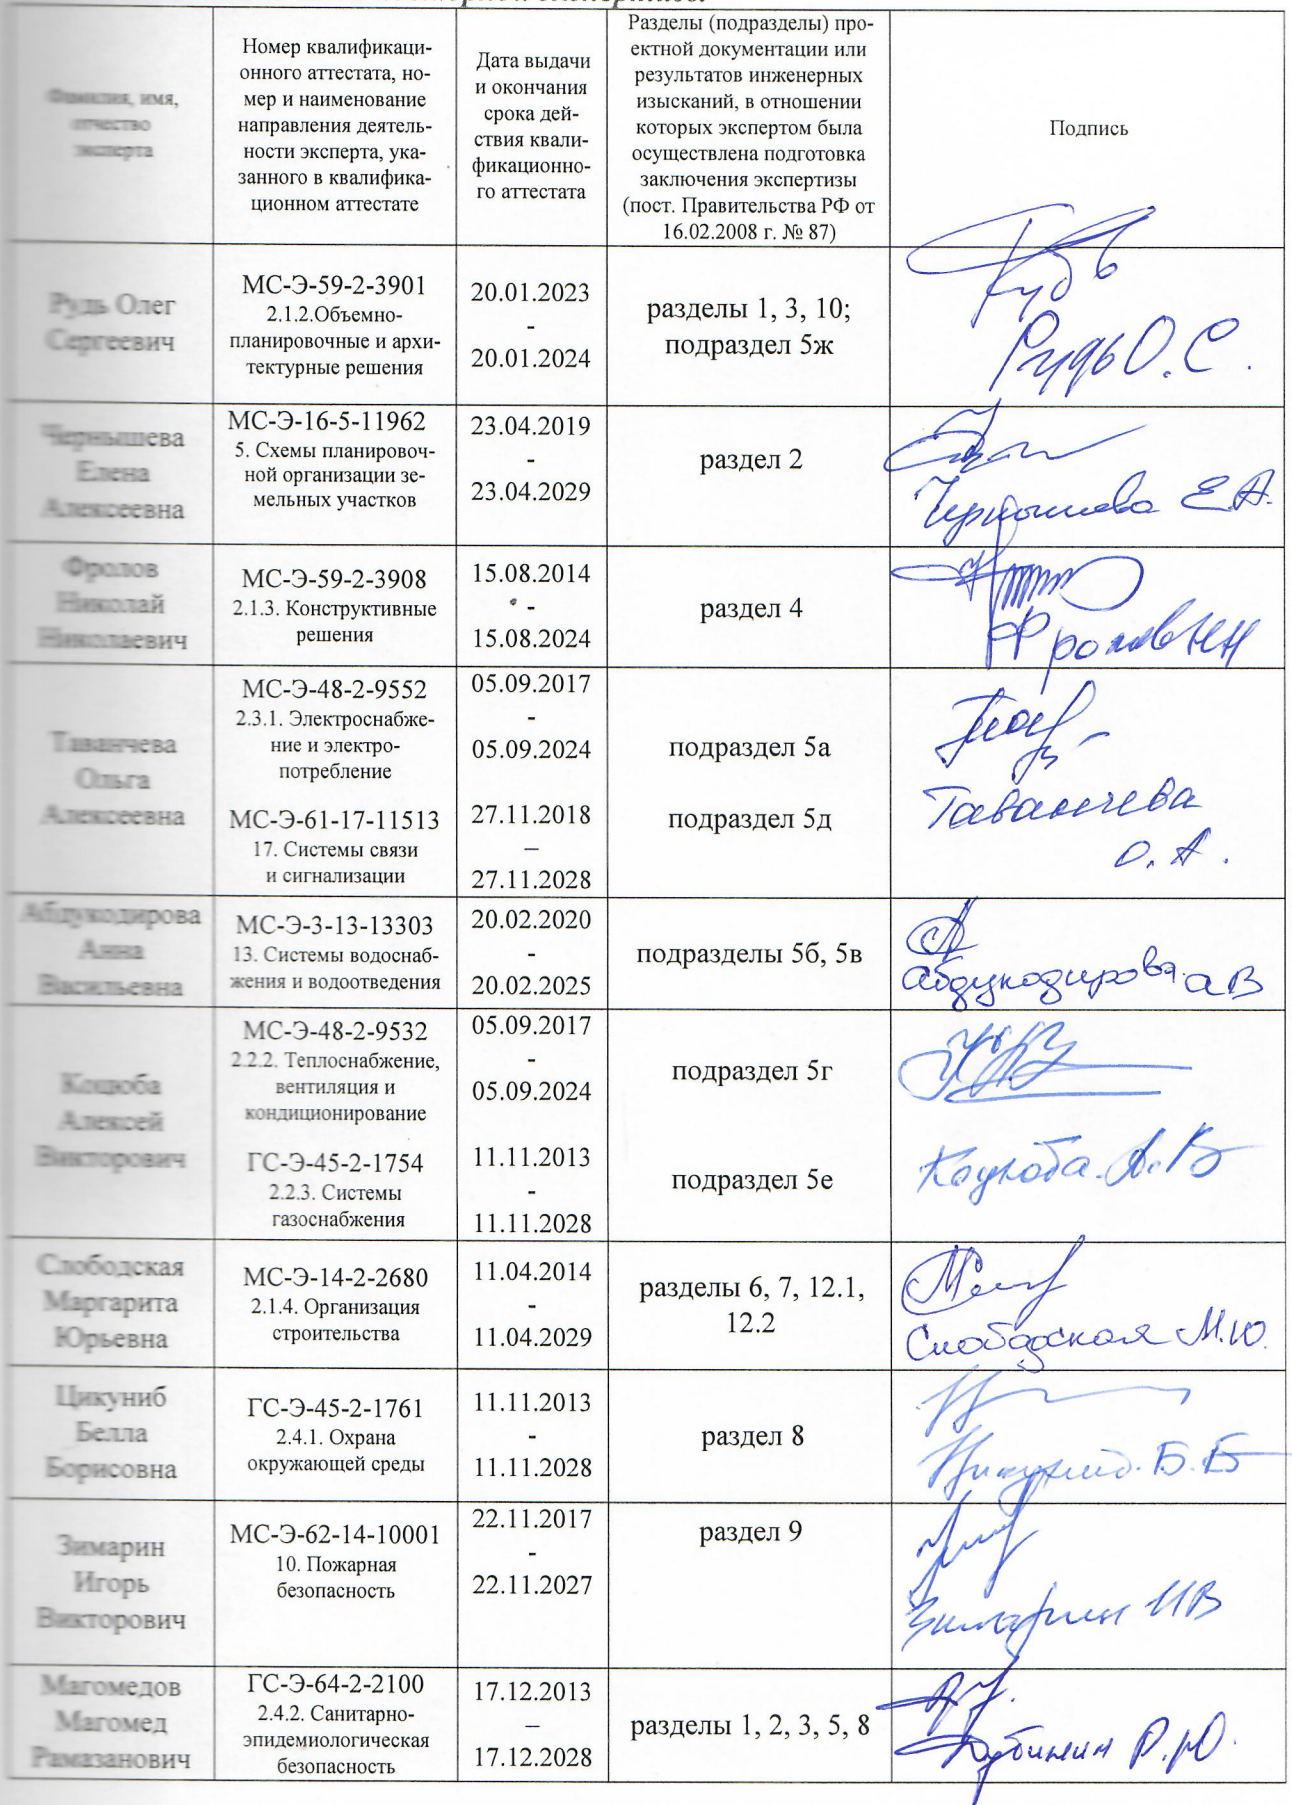 Фамилия, имя,
отчество
эксперта
Номер квалификаци-
онного аттестата, но-
мер и наименование
направления деятель-
ности эксперта, ука-
занного в квалифика-
ционном аттестате
Дата выдачи
и окончания
срока дей-
ствия квали-
фикационно-
го аттестата
Разделы (подразделы) про-
ектной документации или
результатов инженерных
изысканий, в отношении
которых экспертом была
осуществлена подготовка
заключения экспертизы
(пост. Правительства РФ от
16.02.2008 г. № 87)
Подпись
Рудь Олег
Сергеевич
МС-Э-59-2-3901
2.1.2.Объемно-
планировочные и архи-
тектурные решения
20.01.2023
-
20.01.2024
разделы 1, 3, 10;
подраздел 5ж
Рудь
Рудь О. С.
Чернышева
Елена
Алексеевна
МС-Э-16-5-11962
5. Схемы планировоч-
ной организации зе-
мельных участков
23.04.2019
-
23.04.2029
раздел 2
Чернышева Е.А.
Фролов
Николай
Николаевич
МС-Э-59-2-3908
2.1.3. Конструктивные
решения
15.08.2014
-
15.08.2024
раздел 4
Фролов НН
Таванчева
Ольга
Алексеевна
МС-Э-48-2-9552
2.3.1. Электроснабже-
ние и электро-
потребление
05.09.2017
-
05.09.2024
подраздел 5а
МС-Э-61-17-11513
17. Системы связи
и сигнализации
27.11.2018
–
27.11.2028
подраздел 5д
Таванчева
О. А.
Абдукодирова
Анна
Васильевна
МС-Э-3-13-13303
13. Системы водоснаб-
жения и водоотведения
20.02.2020
-
20.02.2025
подразделы 5б, 5в
Абдукодирова АВ
Коцюба
Алексей
Викторович
МС-Э-48-2-9532
2.2.2. Теплоснабжение,
вентиляция и
кондиционирование
05.09.2017
-
05.09.2024
подраздел 5г
ГС-Э-45-2-1754
2.2.3. Системы
газоснабжения
11.11.2013
-
11.11.2028
подраздел 5е
Коцюба. А. В
Слободская
Маргарита
Юрьевна
МС-Э-14-2-2680
2.1.4. Организация
строительства
11.04.2014
-
11.04.2029
разделы 6, 7, 12.1,
12.2
Слободская М.Ю.
Цикуниб
Белла
Борисовна
ГС-Э-45-2-1761
2.4.1. Охрана
окружающей среды
11.11.2013
-
11.11.2028
раздел 8
Цикуниб. Б. Б
Зимарин
Игорь
Викторович
МС-Э-62-14-10001
10. Пожарная
безопасность
22.11.2017
-
22.11.2027
раздел 9
Зимарин ИВ
Магомедов
Магомед
Рамазанович
ГС-Э-64-2-2100
2.4.2. Санитарно-
эпидемиологическая
безопасность
17.12.2013
–
17.12.2028
разделы 1, 2, 3, 5, 8
Р.Ю.